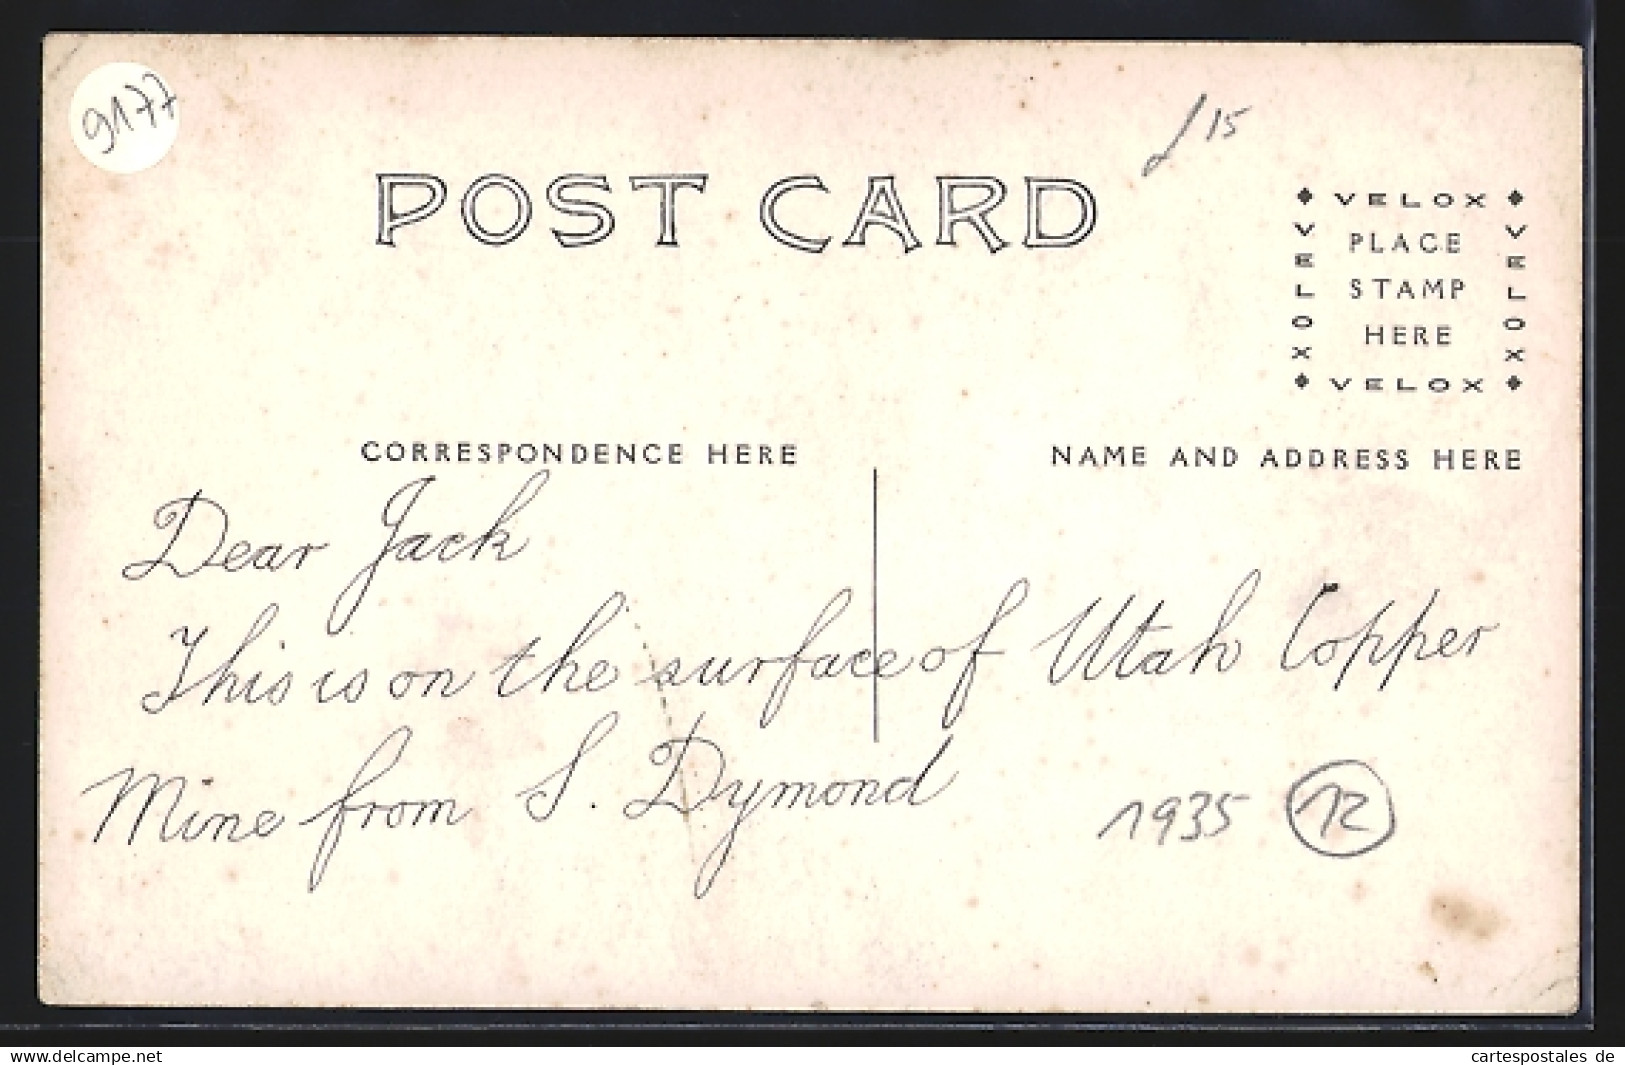 9177
£15
POST CARD
VELOX
PLACE
STAMP
HERE
VELOX
VELOX
VELOX
CORRESPONDENCE HERE
NAME AND ADDRESS HERE
Dear Jack
This is on the surface of Utah Copper
Mine from S. Dymond
1935 12
www.delcampe.net
cartespostales de